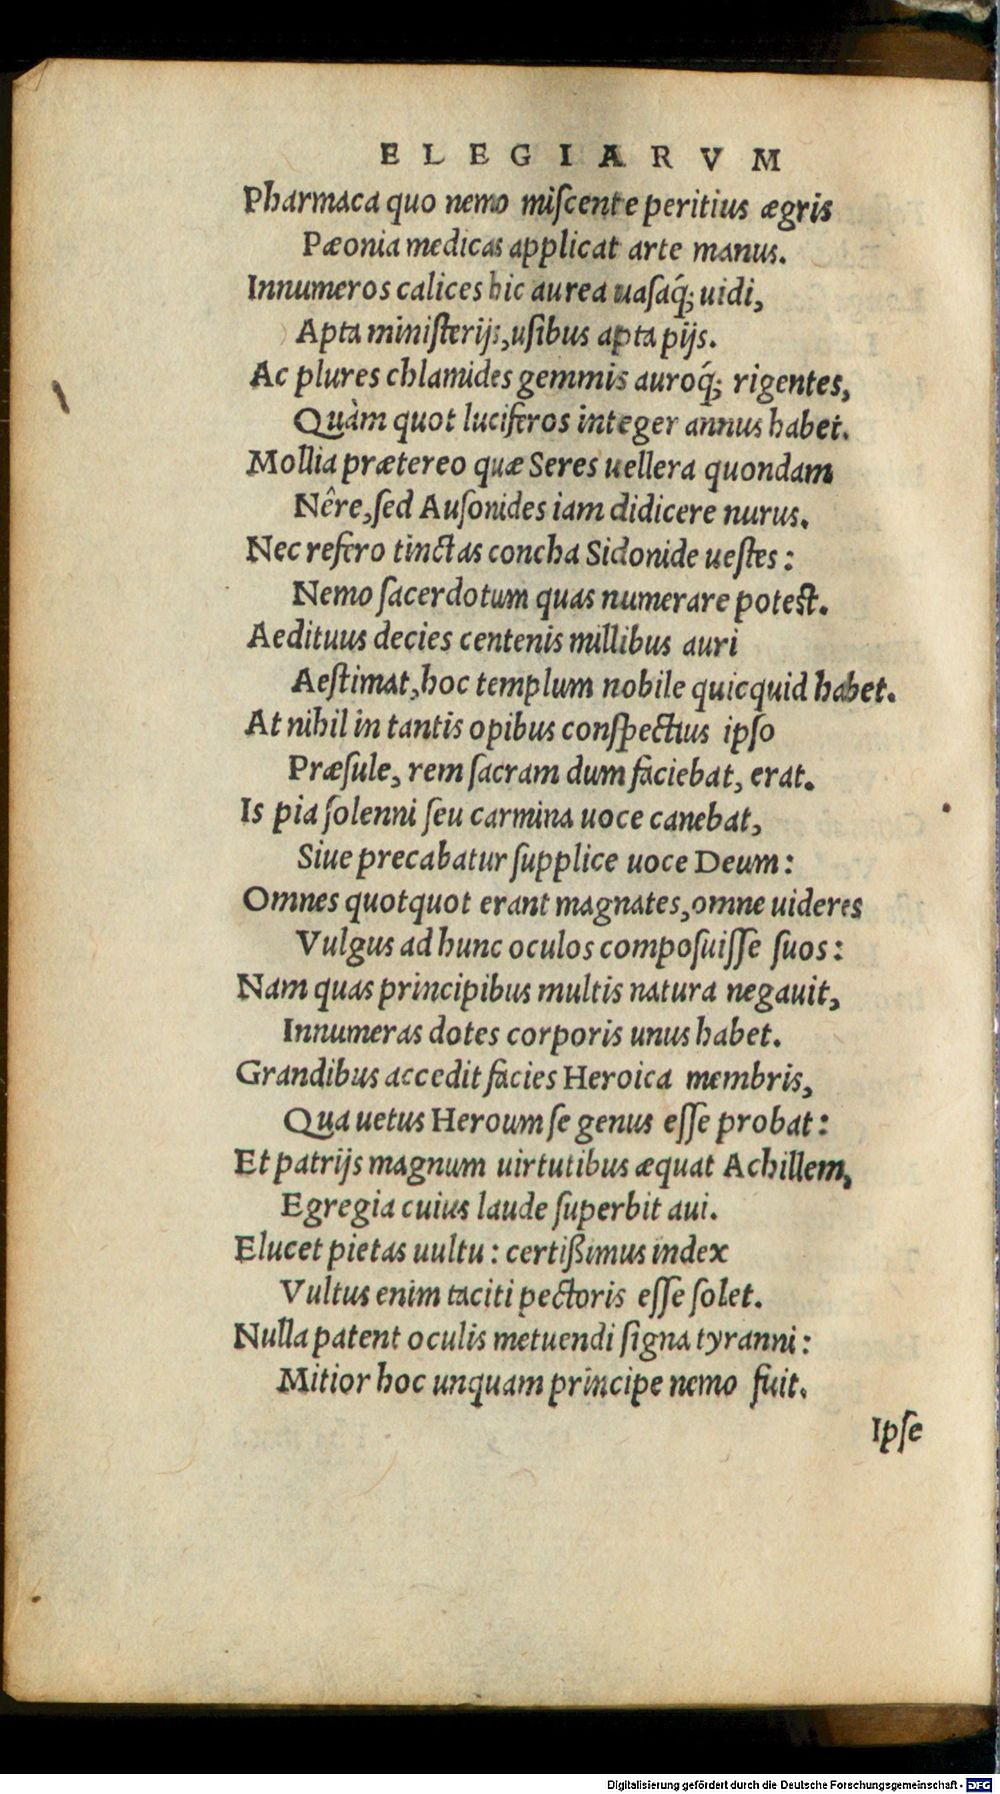 ELEGIARVM
Pharmaca quo nemo miſcente peritius ægris
Pæonia medicas applicat arte manus.
Innumeros calices hic aurea uaſaq́; uidi,
Apta miniſterijs, uſibus apta pijs.
Ac plures chlamides gemmis auroq́; rigentes,
Quàm quot luciferos integer annus habet.
Mollia prætereo quæ Seres uellera quondam
Nêre, ſed Auſonides iam didicere nurus.
Nec refero tinctas concha Sidonide ueſtes:
Nemo ſacerdotum quas numerare poteſt.
Aedituus decies centenis millibus auri
Aeſtimat, hoc templum nobile quicquid habet.
At nihil in tantis opibus conſpectius ipſo
Præſule, rem ſacram dum faciebat, erat.
Is pia ſolenni ſeu carmina uoce canebat,
Siue precabatur ſupplice uoce Deum:
Omnes quotquot erant magnates, omne uideres
Vulgus ad hunc oculos compoſuiſſe ſuos:
Nam quas principibus multis natura negauit,
Innumeras dotes corporis unus habet.
Grandibus accedit facies Heroica membris,
Qua uetus Heroum ſe genus eſſe probat:
Et patrijs magnum uirtutibus æquat Achillem,
Egregia cuius laude ſuperbit aui.
Elucet pietas uultu: certißimus index
Vultus enim taciti pectoris eſſe ſolet.
Nulla patent oculis metuendi ſigna tyranni:
Mitior hoc unquam principe nemo fuit.
Ipſe
Digitalisierung gefördert durch die Deutsche Forschungsgemeinschaft - DFG